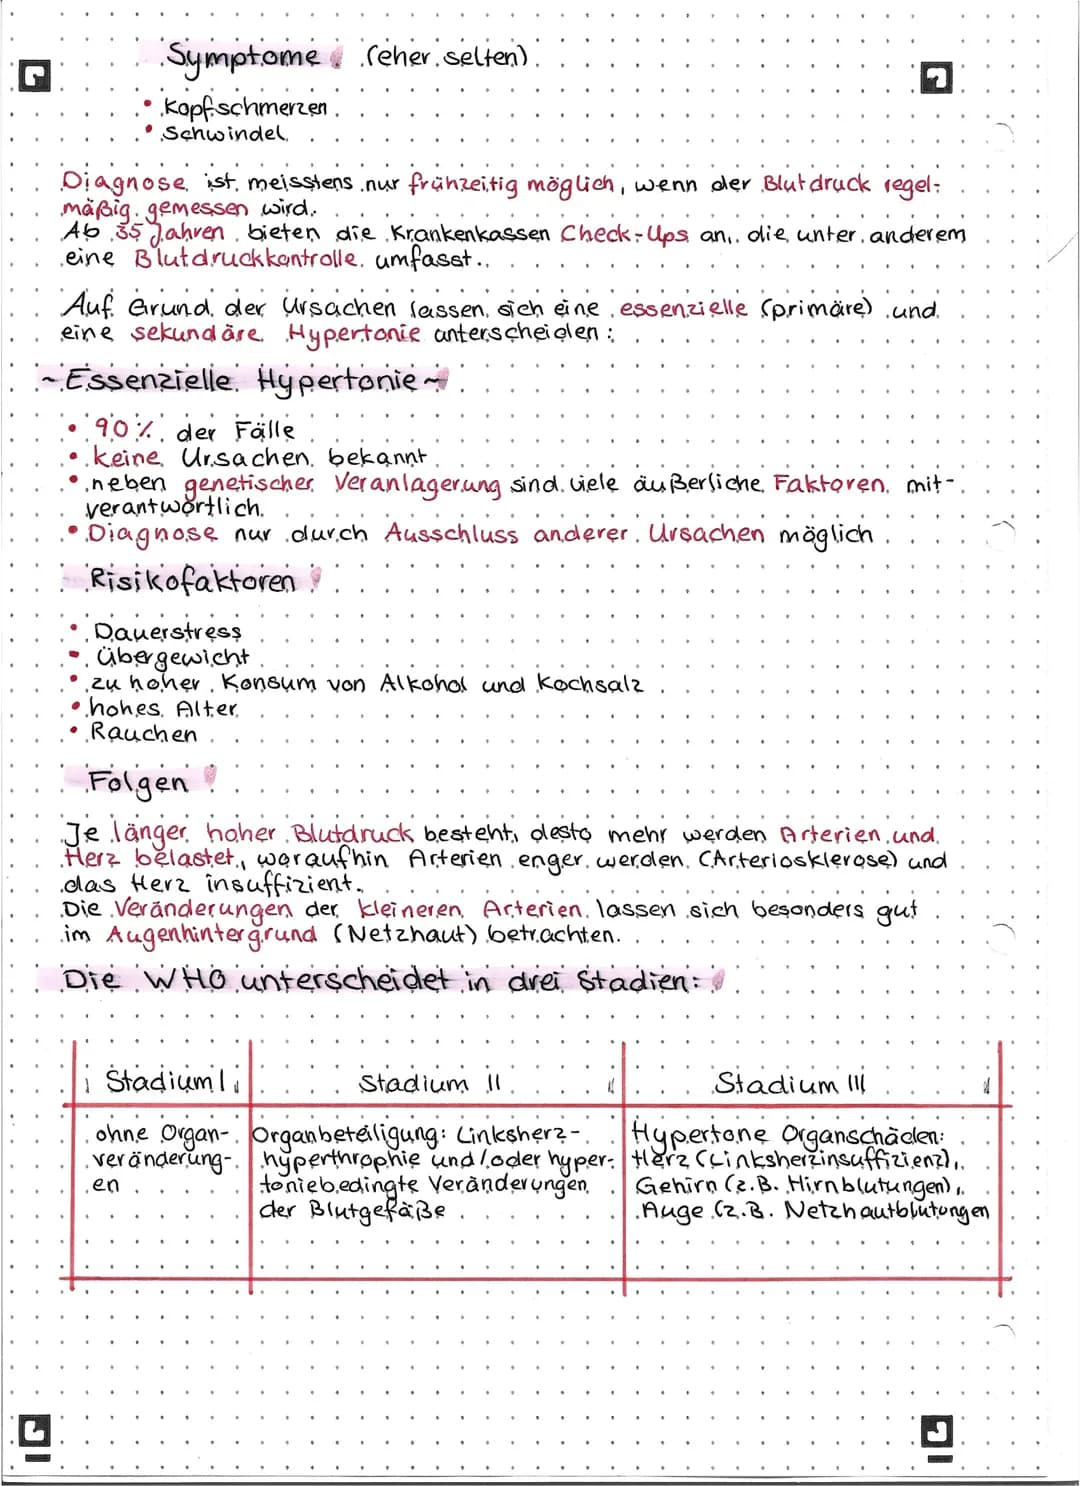 Symptome (eher selten)
• Kopfschmerzen
• Schwindel
Diagnose ist meisstens nur frühzeitig möglich, wenn der Blutdruck regel-
mäßig gemessen wird.
Ab 35 Jahren bieten die Krankenkassen Check-Ups an, die unter anderem
eine Blutdruckkontrolle umfasst.
Auf Grund der Ursachen lassen sich eine essenzielle (primäre) und
eine sekundäre Hypertonie unterscheiden:
~Essenzielle Hypertonie~
• 90% der Fälle
• keine Ursachen bekannt
• neben genetischer Veranlagerung sind viele äußerliche Faktoren mit-
verantwortlich.
• Diagnose nur durch Ausschluss anderer Ursachen möglich
Risikofaktoren
• Dauerstress
• Übergewicht
• zu hoher Konsum von Alkohol und Kochsalz
• hohes Alter
• Rauchen
Folgen
Je länger hoher Blutdruck besteht, desto mehr werden Arterien und
Herz belastet, woraufhin Arterien enger werden (Arteriosklerose) und
das Herz insuffizient.
Die Veränderungen der kleineren Arterien lassen sich besonders gut
im Augenhintergrund (Netzhaut) betrachten.
Die WHO unterscheidet in drei Stadien:
Stadium I
Stadium II
Stadium III
ohne Organ-
veränderung-
en
Organbeteiligung: Linksherz-
hyperthrophie und/oder hyper-
toniebedingte Veränderungen
der Blutgefäße
Hypertone Organschäden:
Herz (Linksherzinsuffizienz),
Gehirn (z.B. Hirnblutungen),
Auge (z.B. Netzhautblutungen